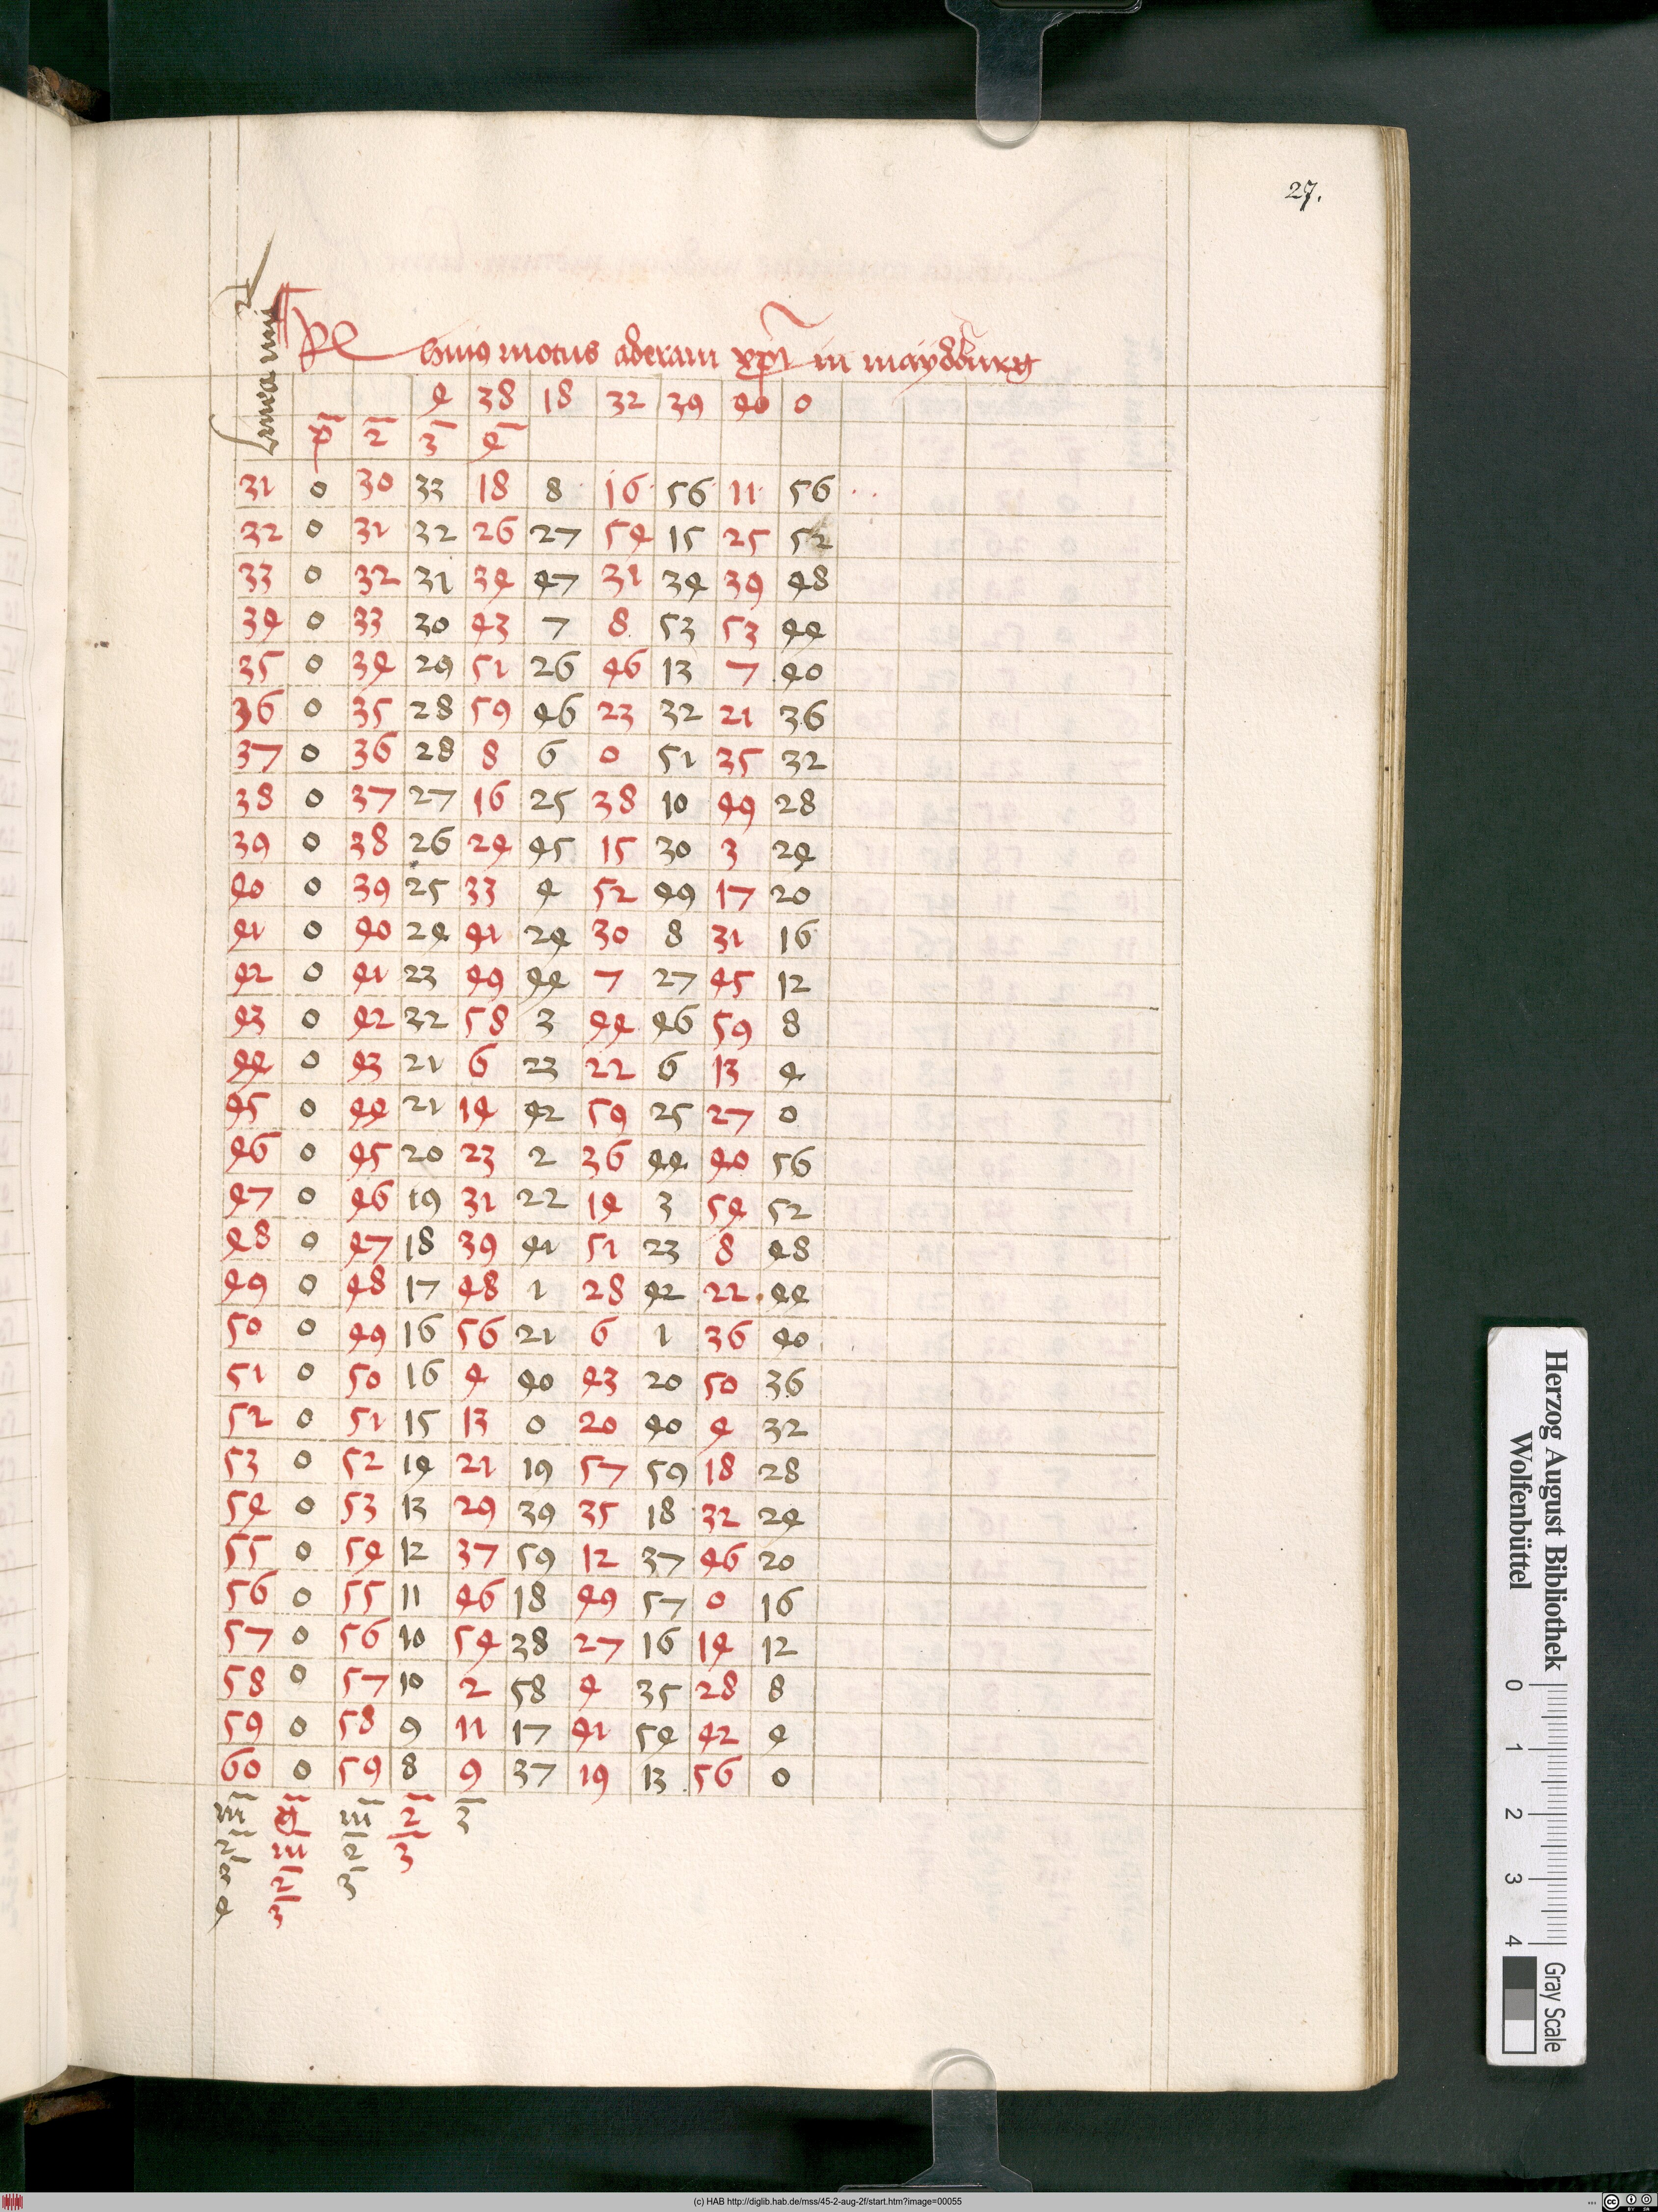 27.
Linea mi
Rx huius motus ad eram xpi in maydburg
4 38 18 32 39 40 0
p 2 3 4
31 0 30 33 18 8 16 56 11 56
32 0 31 32 26 27 54 15 25 52
33 0 32 31 34 47 31 34 39 48
34 0 33 30 43 7 8 53 53 44
35 0 34 29 51 26 46 13 7 40
36 0 35 28 59 46 23 32 21 36
37 0 36 28 8 6 0 51 35 32
38 0 37 27 16 25 38 10 49 28
39 0 38 26 24 45 15 30 3 24
40 0 39 25 33 4 52 49 17 20
41 0 40 24 41 24 30 8 31 16
42 0 41 23 49 44 7 27 45 12
43 0 42 32 58 3 44 46 59 8
44 0 43 21 6 23 22 6 13 4
45 0 44 21 14 42 59 25 27 0
46 0 45 20 23 2 36 44 40 56
47 0 46 19 31 22 14 3 54 52
48 0 47 18 39 41 51 23 8 48
49 0 48 17 48 1 28 42 22 44
50 0 49 16 56 21 6 1 36 40
51 0 50 16 4 40 43 20 50 36
52 0 51 15 13 0 20 40 4 32
53 0 52 14 21 19 57 59 18 28
54 0 53 13 29 39 35 18 32 24
55 0 54 12 37 59 12 37 46 20
56 0 55 11 46 18 49 57 0 16
57 0 56 10 54 38 27 16 14 12
58 0 57 10 2 58 4 35 28 8
59 0 58 9 11 17 41 54 42 4
60 0 59 8 9 37 19 13 56 0
m g m 2 3
2 m 2 3
3 2 3
4 3
Herzog August Bibliothek
Wolfenbüttel
0 1 2 3 4
Gray Scale
(c) HAB http://diglib.hab.de/mss/45-2-aug-2f/start.htm?image=00055